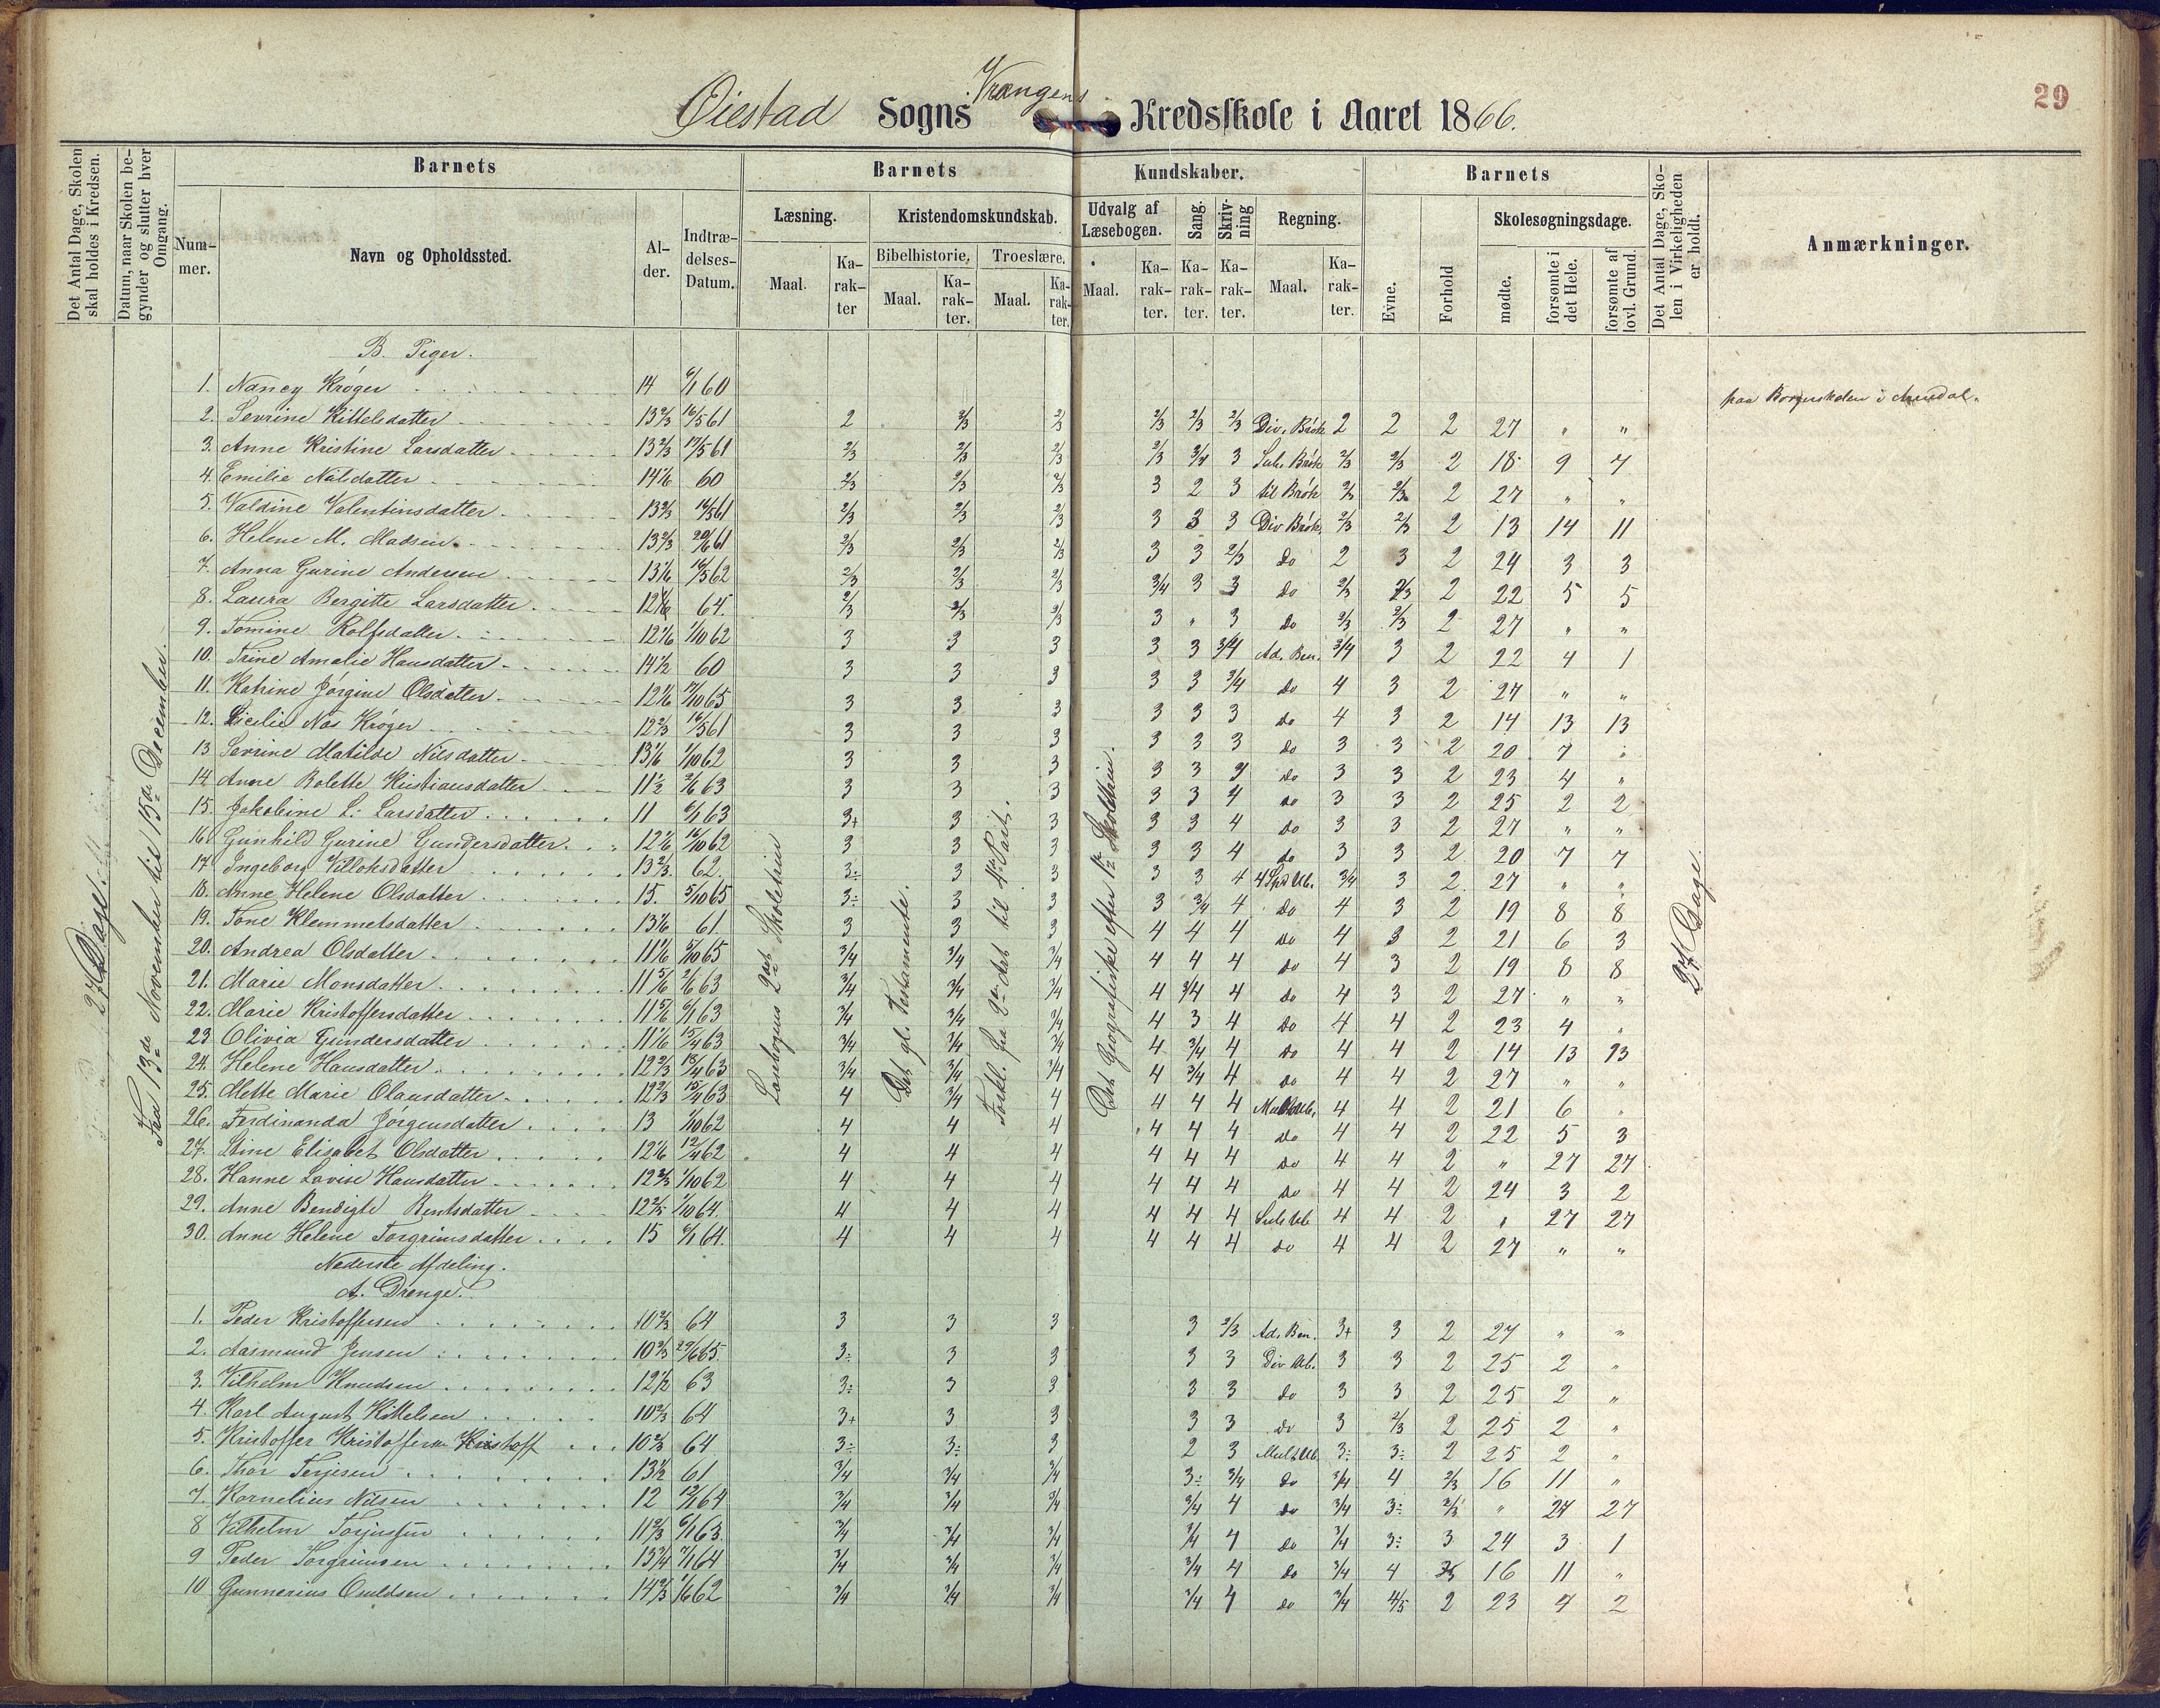 29
Øiestad Sogns Vrængens Kredsskole i Aaret 1866.
Det Antal Dage, Skolen skal holdes i Kredsen.
Datum, naar Skolen begynder og slutter hver Omgang.
Barnets
Nummer.
Navn og Opholdssted.
Alder.
Indtrædelses-Datum.
Barnets Kundskaber.
Læsning.
Maal.
Karakter
Kristendomskundskab.
Bibelhistorie.
Maal.
Karakter.
Troeslære.
Maal.
Karakter.
Udvalg af Læsebogen.
Maal.
Karakter.
Sang.
Karakter.
Skrivning
Karakter.
Regning.
Maal.
Karakter.
Barnets
Evne.
Forhold
Skolesøgningsdage.
mødte.
forsømte i det Hele.
forsømte af lovl. Grund.
Det Antal Dage, Skolen i Virkeligheden er holdt.
Anmærkninger.
27 Dage.
Fra 13de November til 15de December.
Det gl. Testamente.
27 Dage.
B. Piger.
1. Nancy Krøger 14 6/1 60 paa Borgerskolen i Arendal.
2. Sevrine Kittelsdatter 13 2/3 16/5 61 2 2/3 2/3 2/3 2/3 2/3 Div. Brøk 2 2 2 27 " "
3. Anne Kristine Larsdatter 13 2/3 17/5 61 2/3 2/3 2/3 2/3 3/4 3 Sub. Brøk 2/3 2/3 2 18 9 7
4. Emilie Nilsdatter 14 1/6 60 2/3 2/3 2/3 3 2 3 til Brøk 2/3 2/3 2 27 " "
5. Valdine Valentinsdatter 13 2/3 16/5 61 2/3 2/3 2/3 3 3 3 Div Brøk 2/3 2/3 2 13 14 11
6. Helene M. Madsen 13 2/3 20/6 61 2/3 2/3 2/3 3 3 2/3 do 2 3 2 24 3 3
7. Anna Gurine Andersen 13 1/6 16/5 62 2/3 2/3 2/3 3/4 3 3 do 2/3 2/3 2 22 5 5
8. Laura Bergitte Larsdatter 12 1/6 64. 2/3 2/3 2/3 3 " 3 do 2/3 2/3 2 27 " "
9. Tomine Rolfsdatter 12 1/6 1/10 62 3 3 3 3 3 3/4 Ad. Ben. 3/4 3 2 22 4 1
10. Trine Amalie Hansdatter 14 1/2 60 3 3 3 3 3 3/4 do 4 3 2 27 " "
11. Katrine Jørgine Olsdatter 12 1/6 17/10 65 3 3 3 3 3 3 do 4 3 2 14 13 13
12. Sicilie Næs Krøger 12 2/3 16/5 61 3 3 3 3 3 3 do 3 3 2 20 7 "
13 Sevrine Matilde Nilsdatter 13 1/6 1/10 62 3 3 3 3 3 3 do 3 3 2 23 4 "
14. Anne Bolette Kristiansdatter 11 1/2 2/6 63 3 3 3 3 3 4 do 3 3 2 25 2 2
15. Jakobine L. Larsdatter 11 6/1 63 3+ 3 3 3 3 4 do 3 3 2 27 " "
16 Gunhild Gurine Gundersdatter 12 1/6 16/10 62 3 3 3 3 3 4 do 3 3 2 20 7 7
17 Ingeborg Villoksdatter 13 2/3 62. 3÷ 3 3 3 3 4 4 Spd Ub. 3/4 3 2 27 " "
18. Anne Helene Olsdatter 15. 5/10 65 3÷ 3 3 3 3/4 4 do 4 3 2 19 8 8
19. Tone Klemmetsdatter 13 1/6 61. 3 3 3 4 4 4 do 4 3 2 21 6 3
20. Andrea Olsdatter 11 1/6 5/10 65 3/4 3/4 3/4 4 4 4 do 4 3 2 19 8 8
21. Marie Monsdatter 11 5/6 2/6 63 3/4 3/4 3/4 4 3/4 4 do 4 3 2 27 " "
22. Marie Kristoffersdatter 11 5/6 6/1 63 3/4 3/4 3/4 4 3 4 do 4 4 2 23 4 "
23 Olivia Gundersdatter 11 1/6 15/4 63 3/4 3/4 3/4 4 3/4 4 do 4 4 2 14 13 13
24. Helene Hansdatter 12 2/3 18/4 63 3/4 3/4 3/4 4 3/4 4 do 4 4 2 27 " "
25. Mette Marie Olausdatter 12 2/3 15/4 63 4 3/4 4 4 4 4 Mult Ub. 4 4 2 21 6 "
26. Ferdinanda Jørgensdatter 13 1/10 62 4 4 4 4 4 4 do 4 4 2 22 5 3
27. Stine Elisabet Olsdatter 12 1/6 12/4 62 4 4 4 4 4 4 do 4 4 2 " 27 27
28. Hanne Lovise Hansdatter 12 2/3 1/10 62 4 4 4 4 4 4 do 4 4 2 24 3 2
29. Anne Bendigte Bentsdatter 12 2/3 1/10 64. 4 4 4 4 4 4 Sub Ub 4 4 2 " 27 27
30. Anne Helene Torgrimsdatter 15 6/1 64. 4 4 4 4 4 4 do 4 4 2 27 " "
Nederste Afdeling.
A. Drenge.
1. Peder Kristoffersen 10 2/3 64 3 3 3 3 2/3 Ad. Ben. 3+ 3 2 27 " "
2. Aasmund Jensen 10 2/3 29/6 65. 3÷ 3 3 3 3 Div Ub. 3 3 2 25 2 "
3. Vilhelm Knudsen 12 1/2 63 3÷ 3 3 3 3 do 3 3 2 25 2 "
4. Karl August Kittelsen 10 2/3 64 3+ 3 3 3 3 do 3 2/3 2 25 2 "
5. Kristoffer Kristoffersen Kristoff 10 2/3 64 3÷ 3÷ 3 2 3 Mult Ub 3÷ 3÷ 2 25 2 "
6. Thor Terjesen 13 1/2 61 3/4 3/4 3/4 3÷ 3/4 do 3/4 4 2/3 16 11 "
7. Kornelius Nilsen 12 12/1 64 3/4 3/4 3/4 3/4 4 do 3/4 3÷ 2/3 " 27 27
8 Vilhelm Torjussen 11 2/3 6/1 63. 3/4 3/4 3/4 3/4 4 do 3/4 3÷ 3 24 3 1
9 Peder Torgrimsen 13 3/4 7/1 64 3/4 3/4 3/4 3/4 4 do 3/4 4 16 11 "
10 Gunnerius Osuldsen 14 2/3 1/6 62 3/4 3/4 3/4 3/4 4 do 3/4 4/5 2 23 4 2